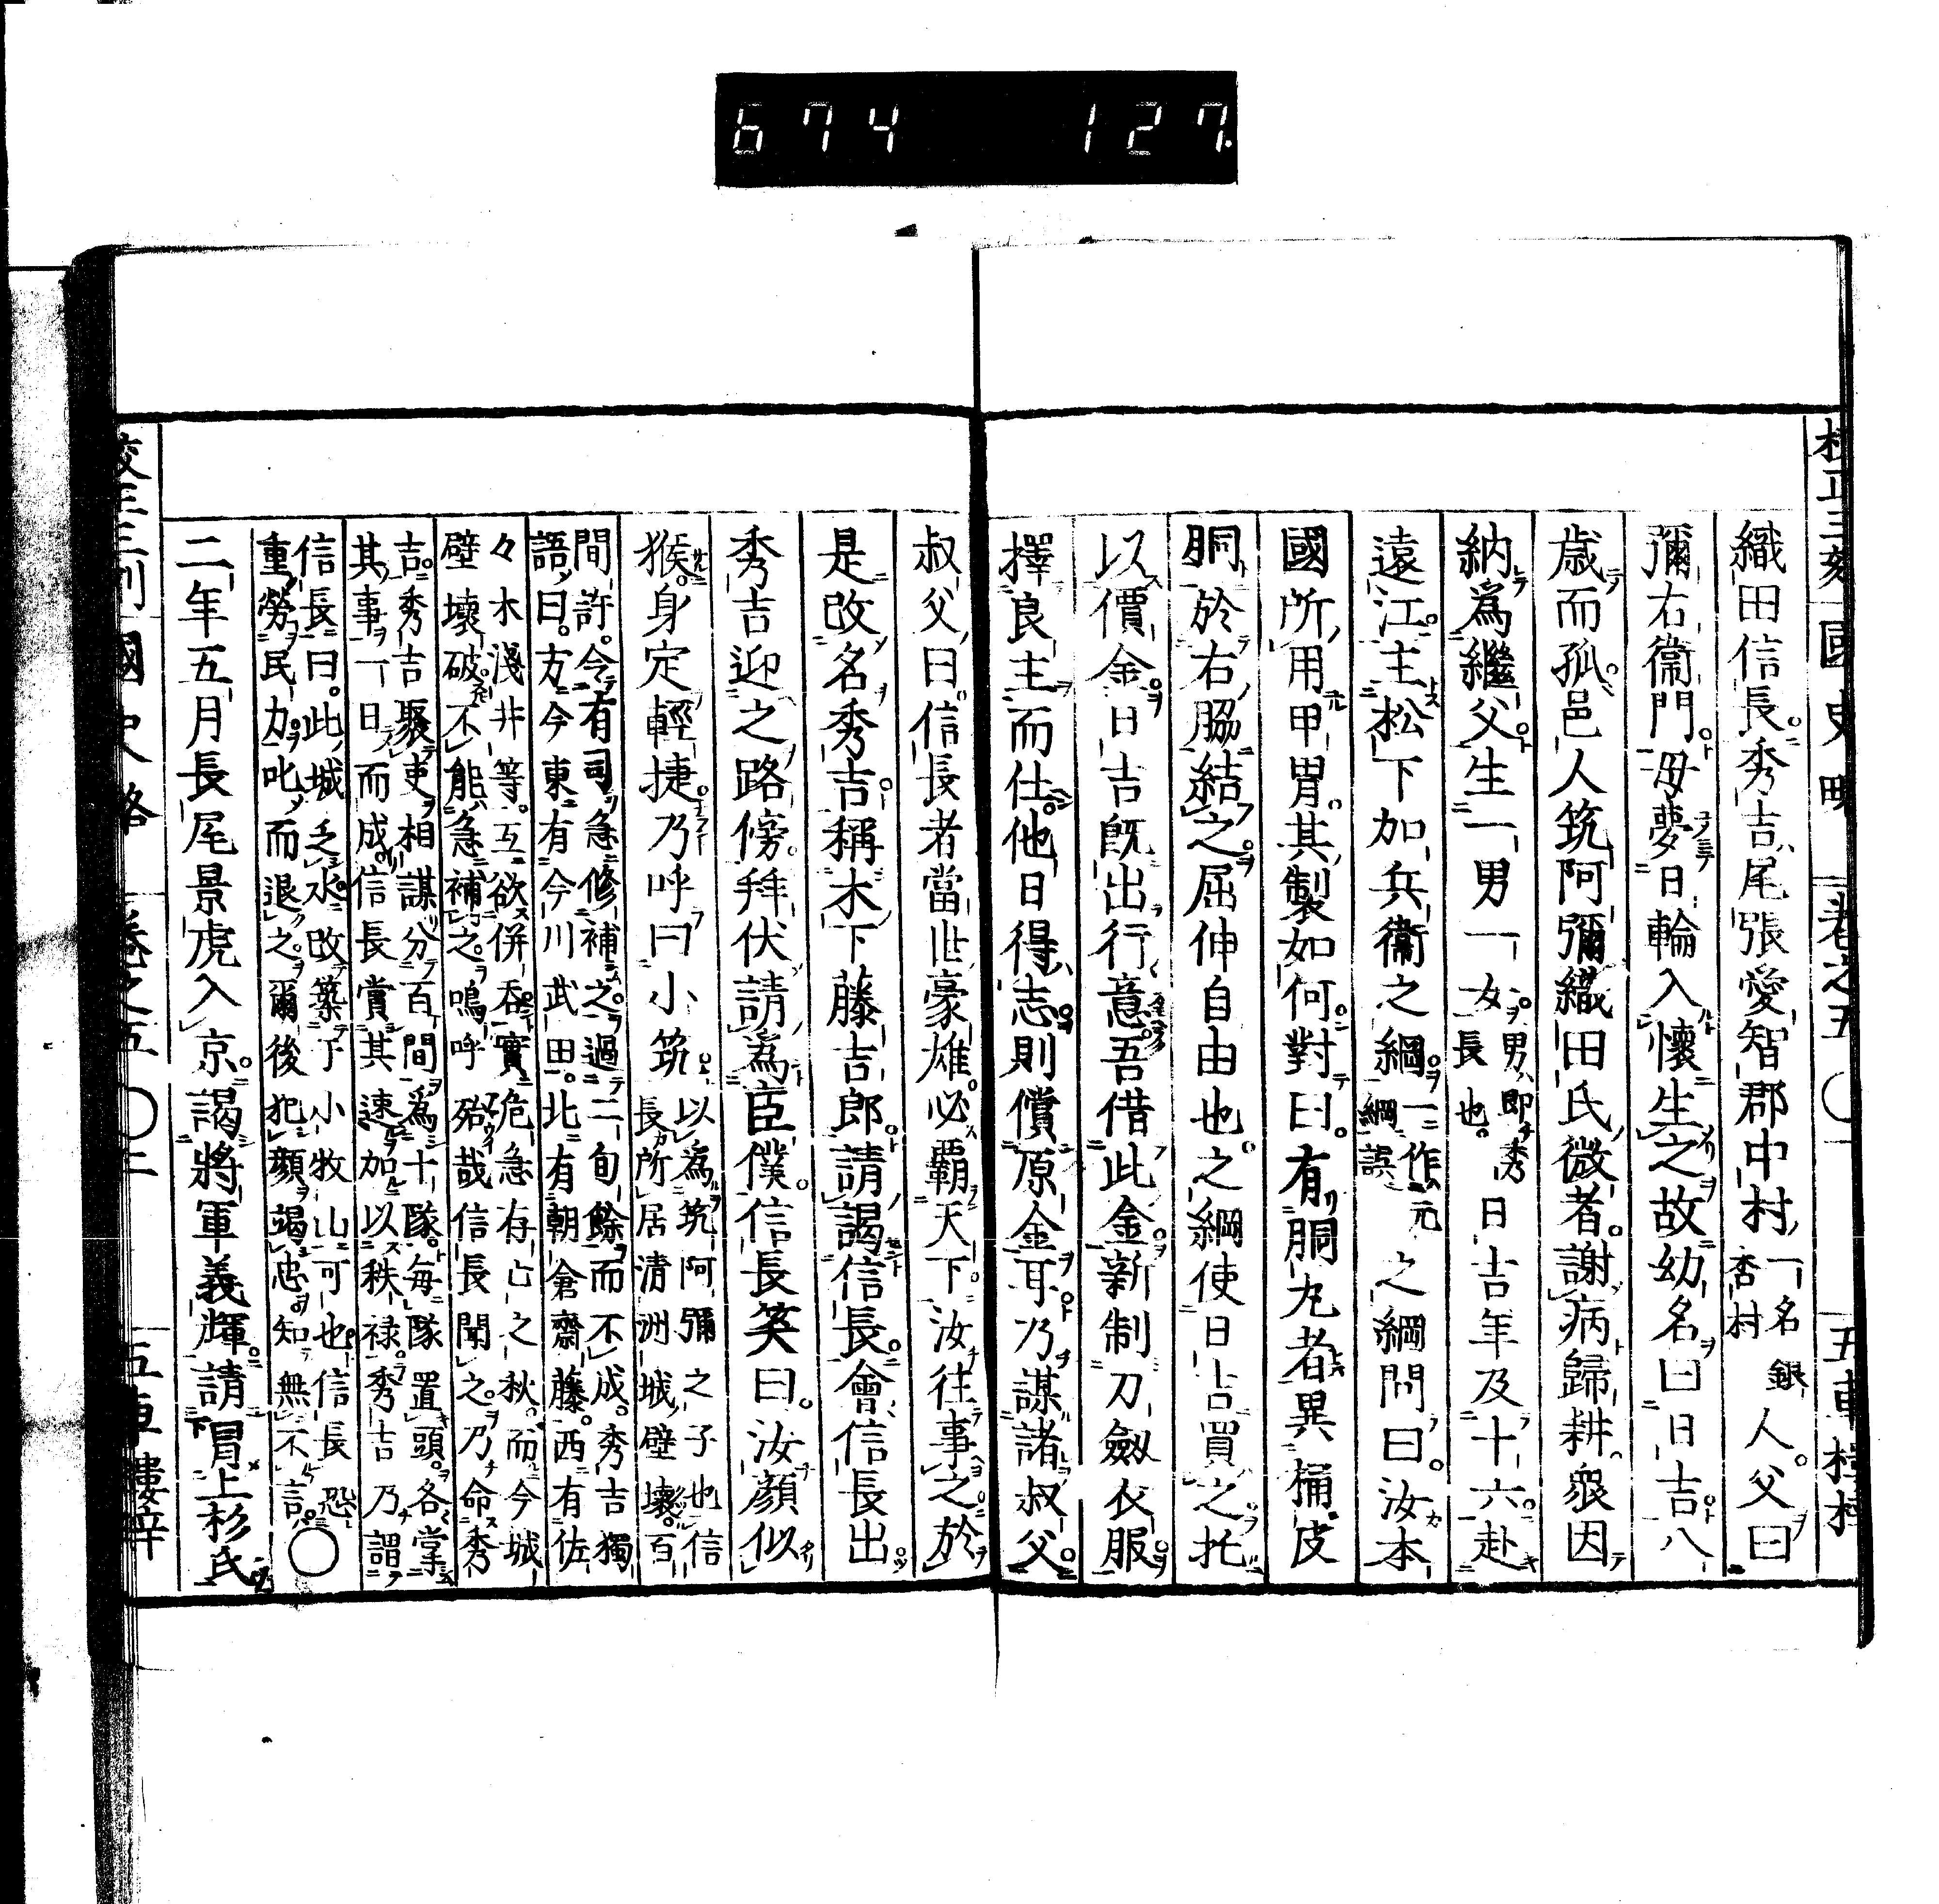 674 127
校正三刻 國史略 卷之五 〇一 五車樓梓
織田信長秀吉尾張愛智郡中村一名銀杏村人父曰
彌右衞門母夢日輪入懷生之故幼名曰日吉八
歲而孤邑人筑阿彌織田氏微者謝病歸耕衆因
納爲繼父生一男一女男卽秀長也日吉年及十六赴
遠江主松下加兵衞之綱一作元綱誤之綱問曰汝本
國所用甲冑其製如何對曰有胴丸者異桶皮
胴於右脇結之屈伸自由也之綱使日吉買之托
以價金日吉旣出行意吾借此金新制刀劔衣服
擇良主而仕他日得志則償原金耳乃謀諸叔父
叔父曰信長者當世豪雄必覇天下汝往事之於
是改名秀吉稱木下藤吉郎請謁信長會信長出
秀吉迎之路傍拜伏請爲臣僕信長笑曰汝顏似
猴身定輕捷乃呼曰小筑以爲筑阿彌之子也信長所居清洲城壁壞百
間許今有司急修補之過二旬餘而不成秀吉獨
語曰方今東有今川武田北有朝倉齋藤西有佐
々木淺井等互欲併吞實危急存亡之秋而今城
壁壞破不能急補之嗚呼殆哉信長聞之乃命秀
吉秀吉聚吏相謀分百間爲十隊每隊置頭各掌
其事一日而成信長賞其速加以秩祿秀吉乃謂
信長曰此城乏水改築于小牧山可也信長恐
重勞民力叱而退之爾後犯顏竭忠知無不言〇
二年五月長尾景虎入京謁將軍義輝請冒上杉氏
校正三刻 國史略 卷之五 〇二 五車樓梓